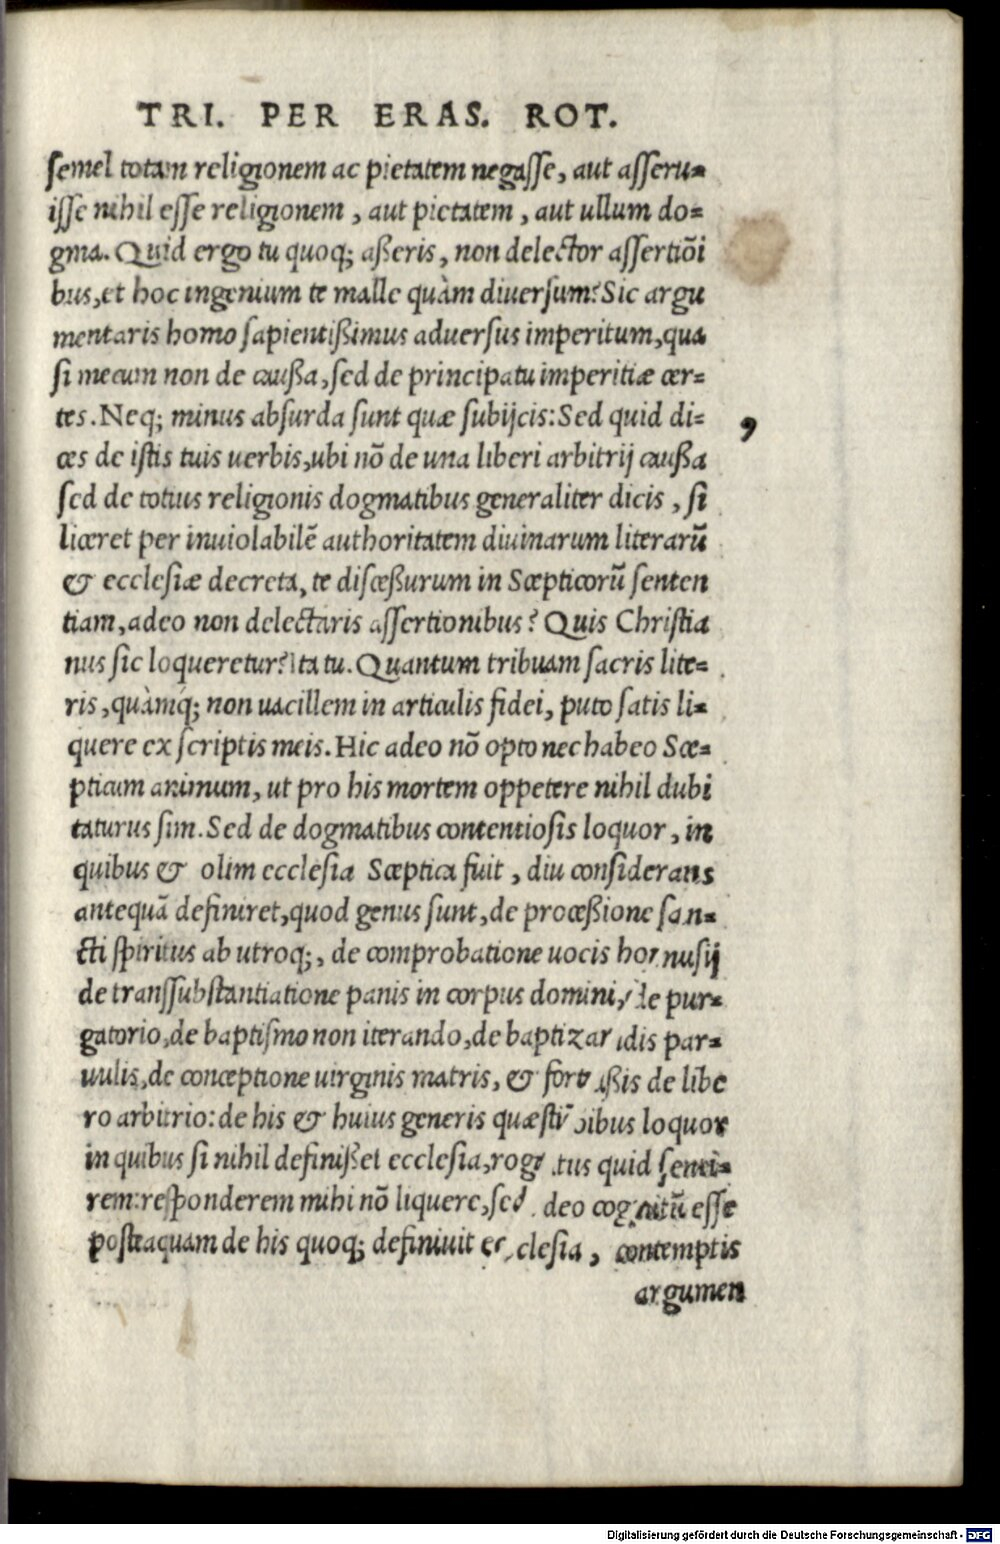 TRI. PER ERAS. ROT.
semel totam religionem ac pietatem negasse, aut asseru=
isse nihil esse religionem, aut pietatem, aut ullum do=
gma. Quid ergo tu quoq; aßeris, non delector assertiõi
bus, et hoc ingenium te malle quàm diuersum? Sic argu
mentaris homo sapientißimus aduersus imperitum, qua
si mecum non de caußa, sed de principatu imperitiæ cer=
tes. Neq; minus absurda sunt quæ subijcis: Sed quid di=
ces de istis tuis uerbis, ubi nõ de una liberi arbitrij caußa
sed de totius religionis dogmatibus generaliter dicis, si
liceret per inuiolabilẽ authoritatem diuinarum literarũ
& ecclesiæ decreta, te disceßurum in Scepticorũ senten
tiam, adeo non delectaris assertionibus? Quis Christia
nus sic loqueretur? Ita tu. Quantum tribuam sacris lite=
ris, quàmq́; non uacillem in articulis fidei, puto satis li=
quere ex scriptis meis. Hic adeo nõ opto nec habeo Sce=
pticum animum, ut pro his mortem oppetere nihil dubi
taturus sim. Sed de dogmatibus contentiosis loquor, in
quibus & olim ecclesia Sceptica fuit, diu considerans
antequã definiret, quod genus sunt, de proceßione san=
cti spiritus ab utroq;, de comprobatione uocis homusij
de transsubstantiatione panis in corpus domini, de pur=
gatorio, de baptismo non iterando, de baptizandis par=
uulis, de conceptione uirginis matris, & fortaßis de libe
ro arbitrio: de his & huius generis quæstionibus loquor
in quibus si nihil definißet ecclesia, rogatus quid senti=
rem: responderem mihi nõ liquere, sed deo cognitũ esse
posteaquam de his quoq; definiuit ecclesia, contemptis
argumen
Digitalisierung gefördert durch die Deutsche Forschungsgemeinschaft - DFG